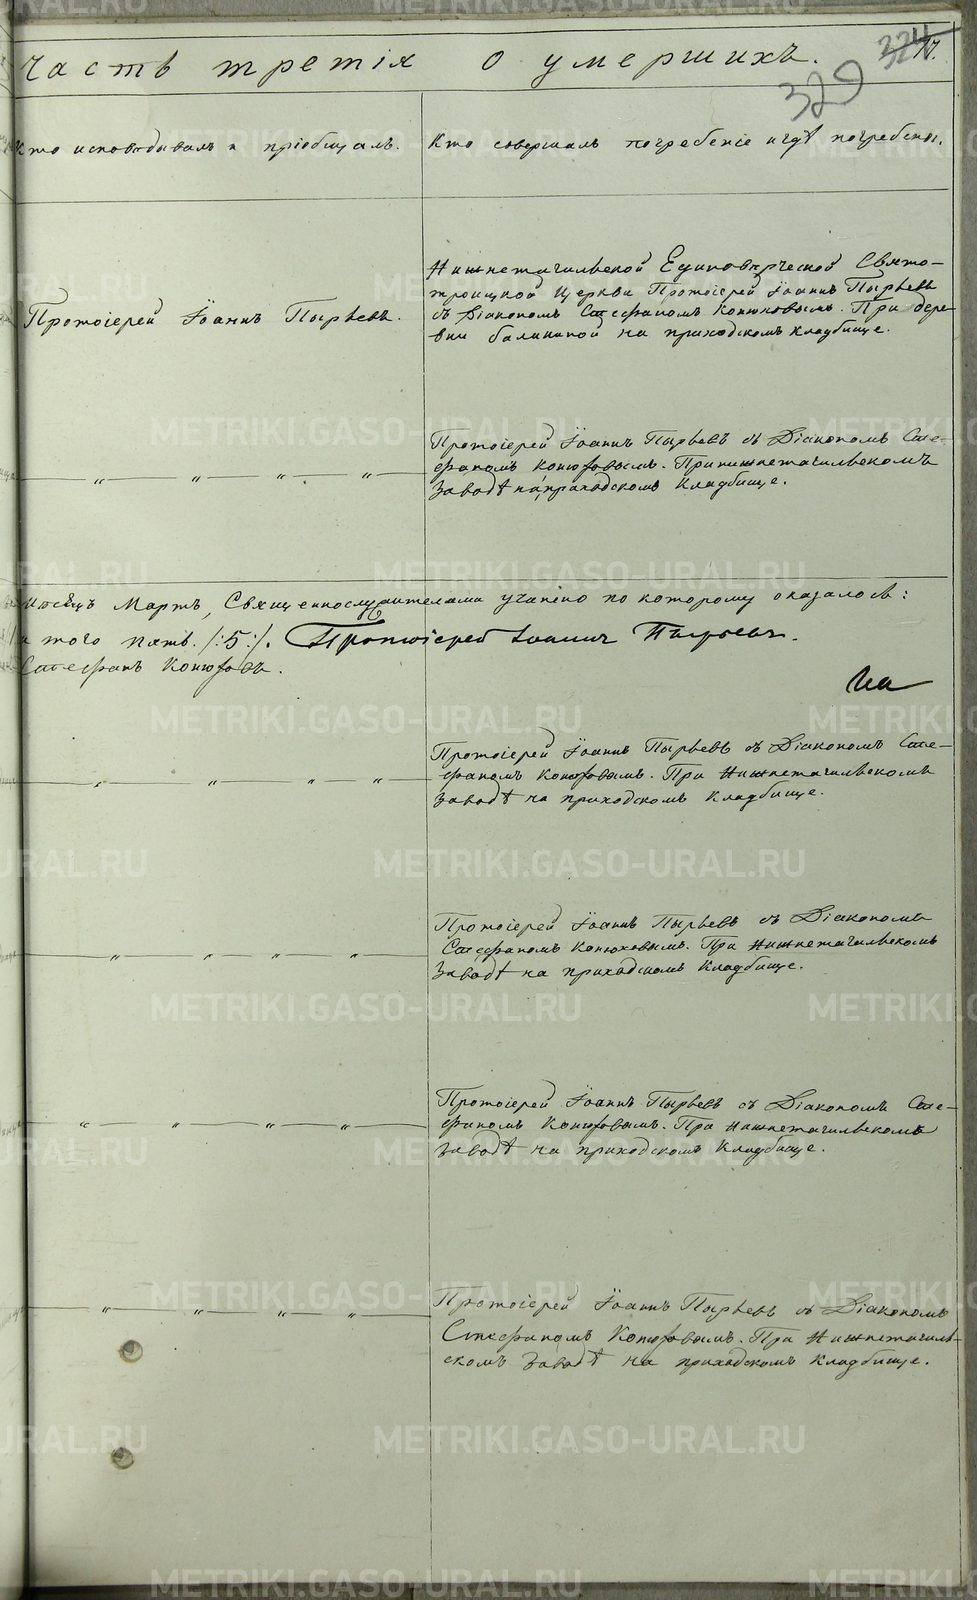 часть третія о умершихъ.
324
17.
329
Кто исповѣдывалъ и пріобщалъ.
Кто совершалъ погребеніе и гдѣ погребены.
Протоіерей Іоаннъ Пырьевъ.
Нижнетагильской Единовѣрческой Свято-
троицкой Церкви Протоіерей Іоаннъ Пырьевъ
съ Діакономъ Стефаномъ Конюховымъ. При дере-
вни балакиной на приходскомъ кладбище.
— „ „ „ „ —
Протоіерей Іоаннъ Пырьевъ съ Діакономъ Сте-
фаномъ Конюховымъ. При нижнетагильскомъ
Заводѣ на приходскомъ Кладбище.
мѣсяцъ Мартъ, Священнослужителами учинено по которому оказалось:
и того пять /:5:/. Протоіерей Іоаннъ Пырьевъ.
Стефанъ Конюховъ.
На
— „ „ „ „ —
Протоіерей Іоаннъ Пырьевъ съ Діакономъ Сте-
фаномъ Конюховымъ. При Нижнетагильскомъ
Заводѣ на приходскомъ Кладбище.
— „ „ „ „
Протоіерей Іоаннъ Пырьевъ съ Діакономъ
Стефаномъ Конюховымъ. При Нижнетагильскомъ
Заводѣ на приходскомъ Кладбище.
— „ „ „ „ —
Протоіерей Іоаннъ Пырьевъ съ Діакономъ Сте-
фаномъ Конюховымъ. При Нижнетагильскомъ
Заводѣ на приходскомъ Кладбище.
— „ „ „ „ —
Протоіерей Іоаннъ Пырьевъ съ Діакономъ
Стефаномъ Конюховымъ. При Нижнетагиль-
скомъ Заводѣ на приходскомъ Кладбище.
METRIKI.GASO-URAL.RU